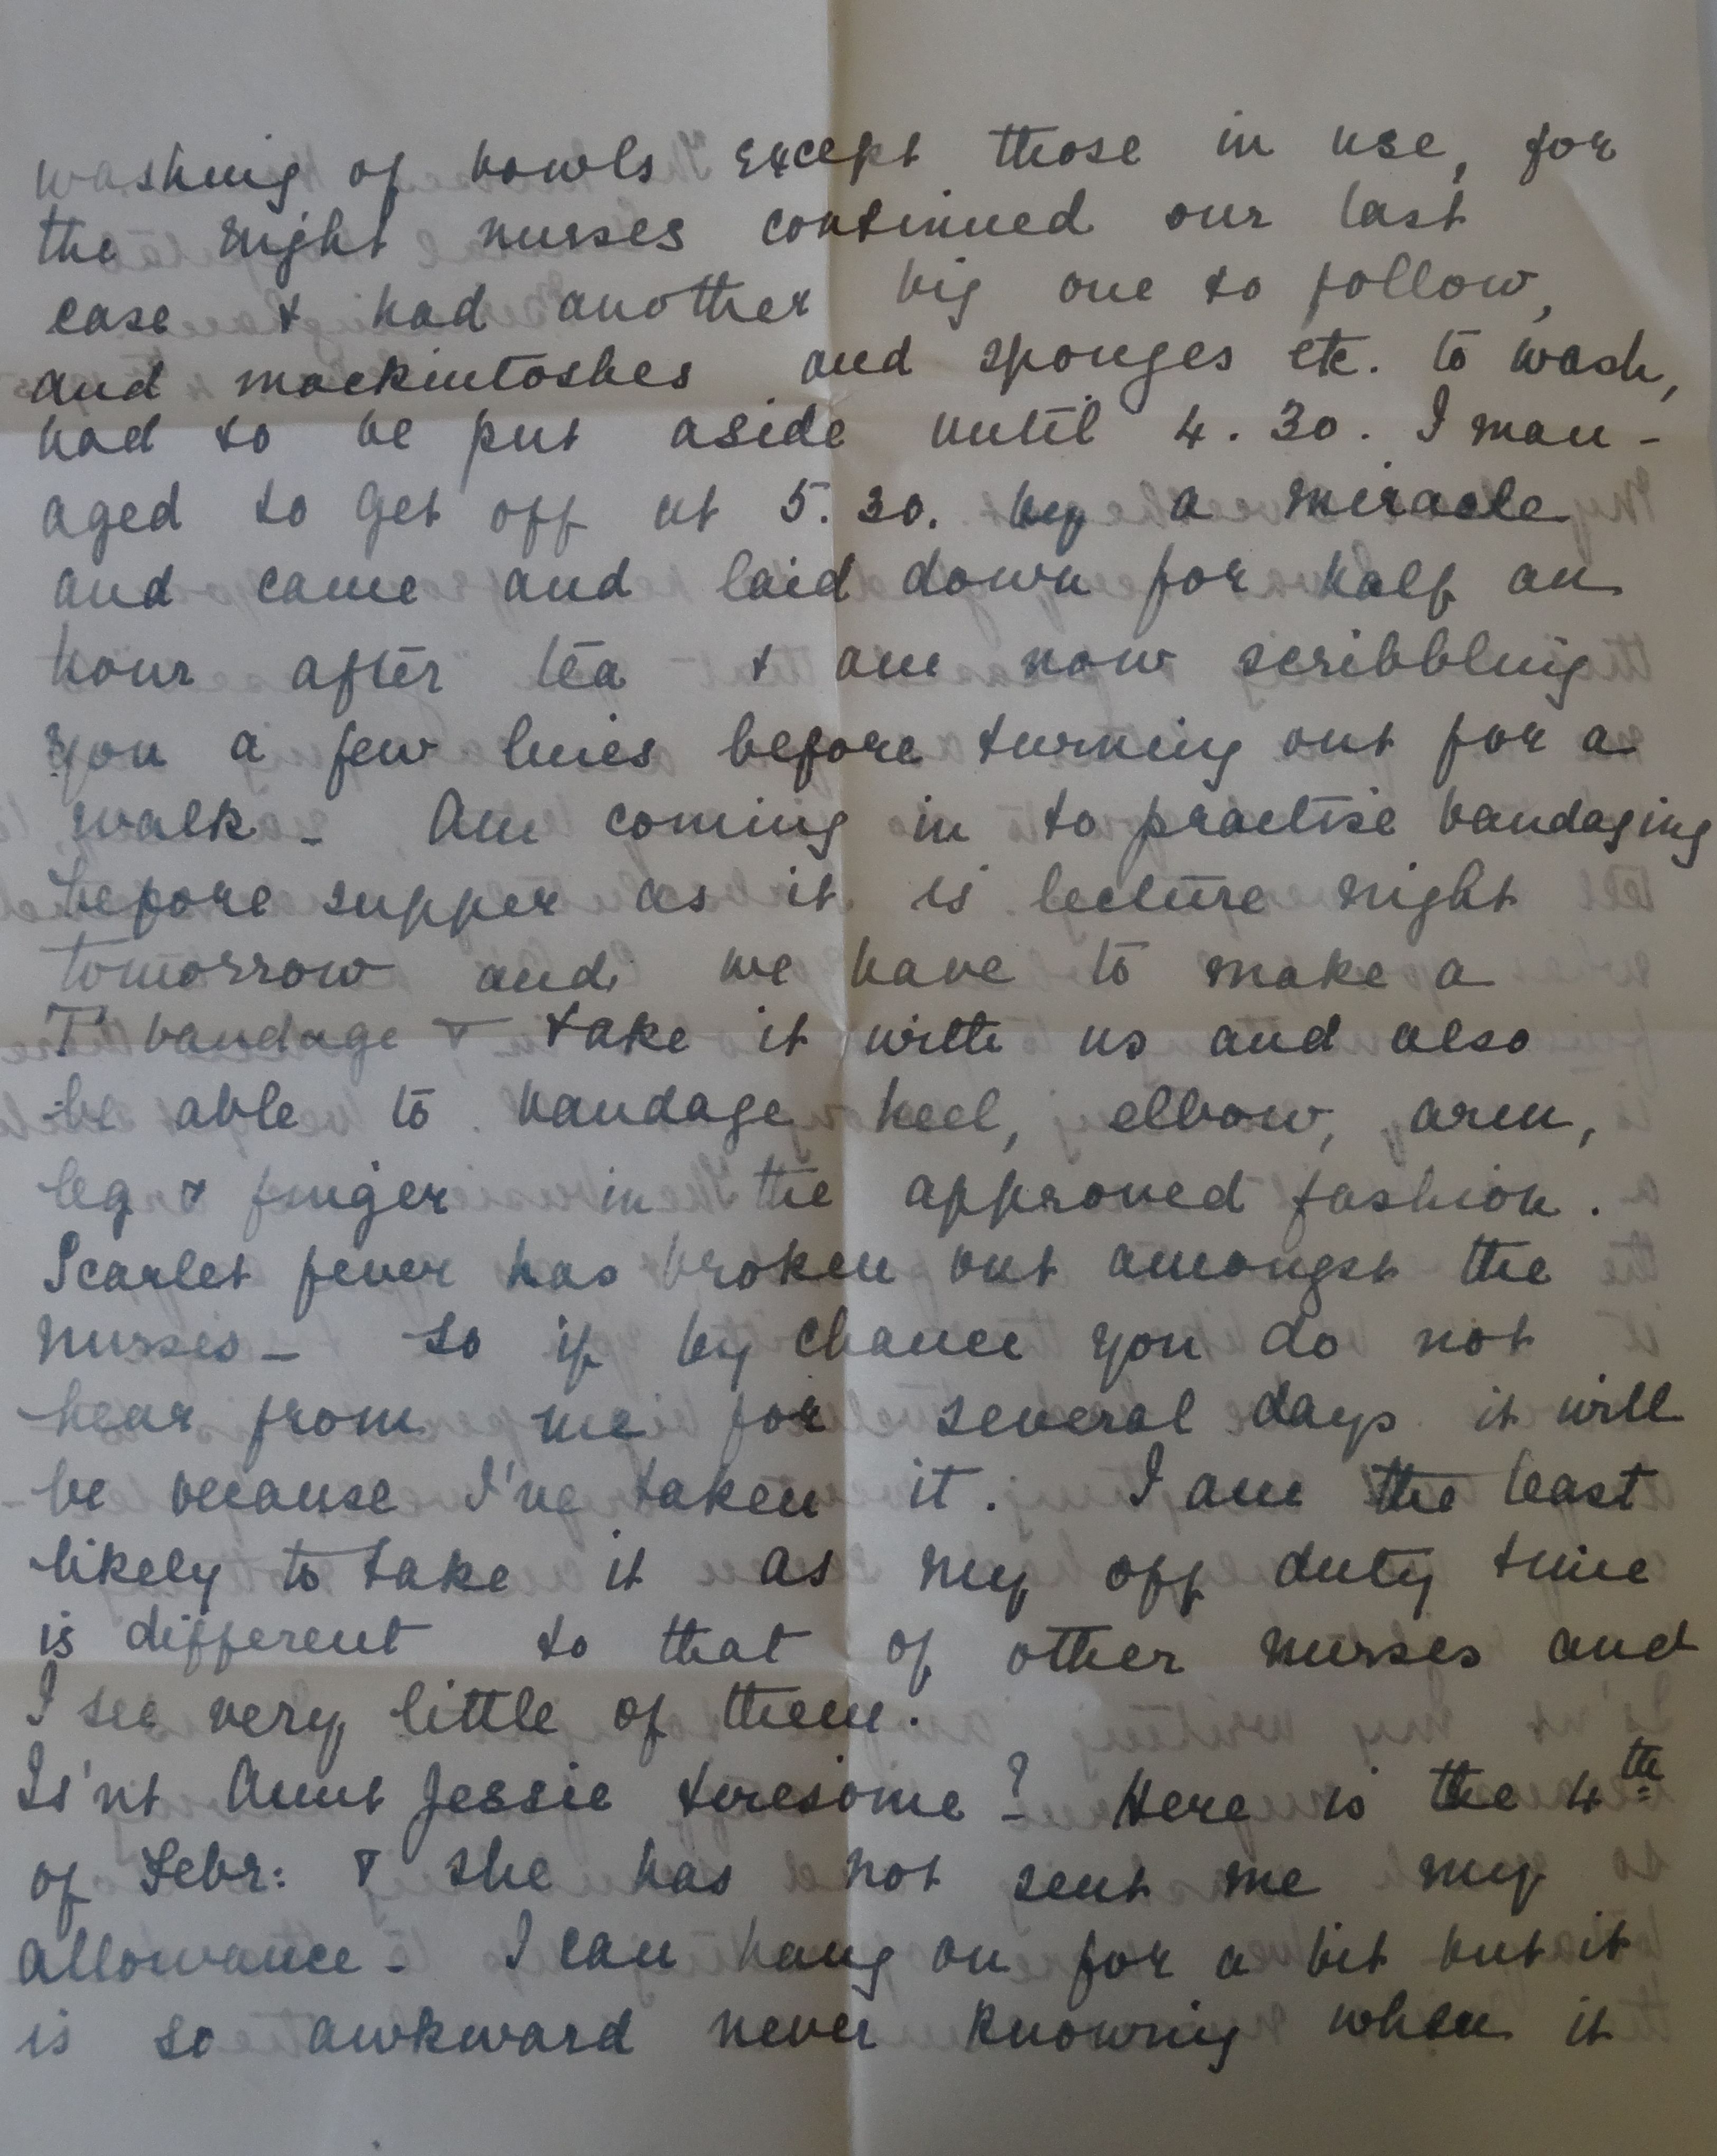 washing of bowls except those in use, for
the night nurses continued our last
case & had another big one to follow,
and mackintoshes and sponges etc. to wash,
had to be put aside until 4.30. I man-
aged to get off at 5.30. by a miracle
and came and laid down for half an
hour after tea & am now scribbling
you a few lines before turning out for a
walk - Am coming in to practise bandaging
before supper as it is lecture night
tomorrow and we have to make a
T bandage & take it with us and also
be able to bandage heel, elbow, arm,
leg & finger in the approved fashion.
Scarlet fever has broken out amongst the
nurses - so if by chance you do not
hear from me for several days it will
be because I've taken it. I am the least
likely to take it as my off duty time
is different to that of other nurses and
I see very little of them.
Is'nt Aunt Jessie tiresome? Here is the 4th
of Febr: & she has not sent me my
allowance - I can hang on for a bit but it
is so awkward never knowing when it